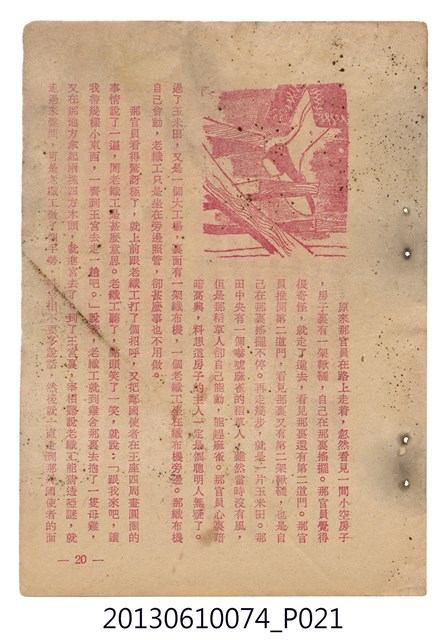 原來那官員在路上走着，忽然看見一間小空房子
，房子裏有一架鞦韆，自己在那裏搖擺。那官員覺得
很奇怪，就走了進去，看見那裏還有第二道門。那官
員推開第二道門，看見那裏又有第二架鞦韆，也是自
己在那裏搖擺不停。再走幾步，就是一片玉米田。那
田中央有一個嚇唬麻雀的稻草人，雖然當時沒有風，
但是那稻草人卻自己能動，能趕麻雀。那官員心裏暗
暗高興，料想這房子的主人一定是個聰明人無疑了。
過了玉米田，又是一個大工場，裏面有一架織布機，一個老織工坐在織布機旁邊。那織布機
自己會動，老織工只是坐在旁邊照管，卻甚麼事也不用做。
那官員看得驚訝極了，就上前跟老織工打了個招呼，又把鄰國使者在王座四周畫圓圈的
事情說了一遍，問老織工是甚麼意思。老織工聽了，點頭笑了一笑，就說：「跟我來吧，讓
我帶幾樣小東西，一齊到王宮去走一趟吧。」說着，老織工就到雞舍那裏去抱了一隻母雞，
又在那地方拿起兩塊四方木頭，就進宮去了。到了王宮裏，宰相說老織工能猜透啞謎，就
走過來
— 20 —
20130610074_P021